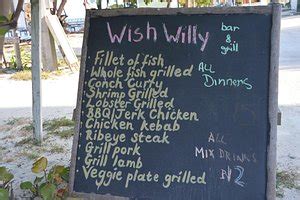 Wish Willy
bar
&
grill
Fillet of fish
Whole fish grilled
Conch Curry
Shrimp Grilled
Lobster Grilled
BBQ/Jerk Chicken
Chicken kebab
Ribeye steak
Grill pork
Grill lamb
Veggie plate grilled
ALL
Dinners
ALL
MIX DRINKS